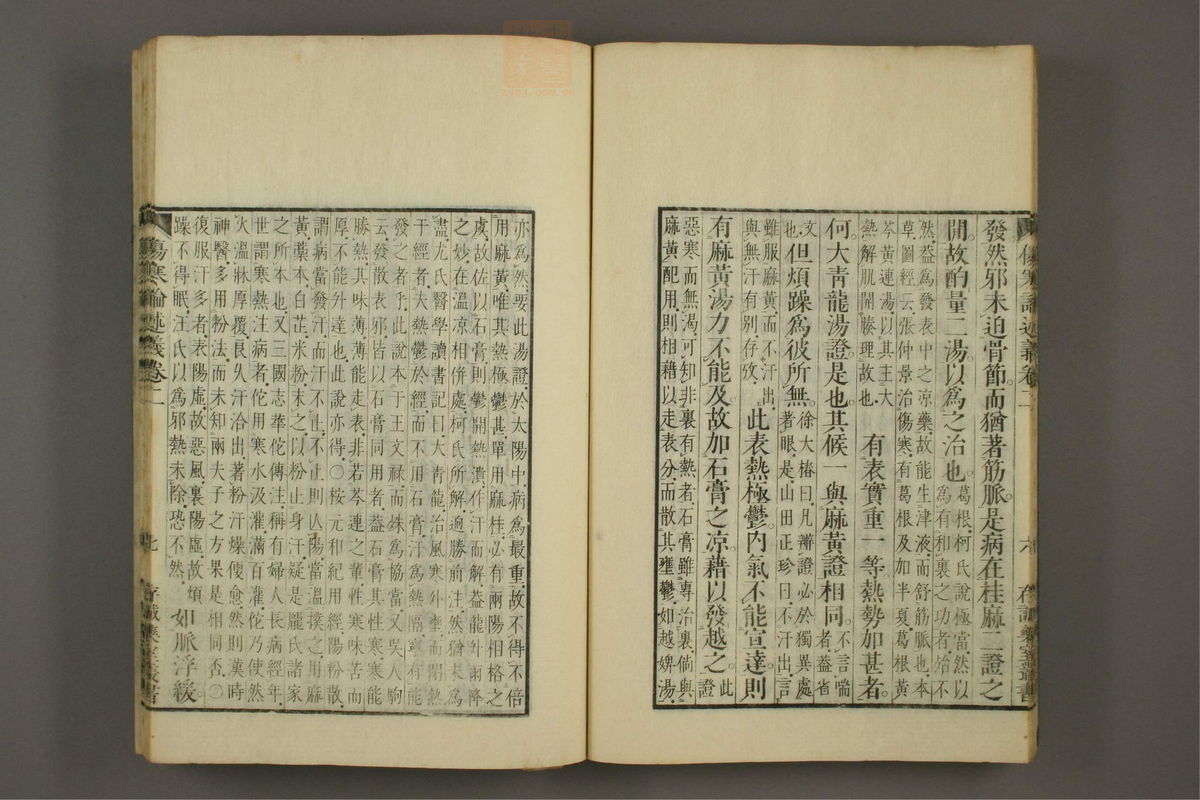 發然邪未迫骨節而猶著筋脈是病在桂麻二證之
開故酌量二湯以爲之治也葛根柯氏說極當然以
爲有和裏之功者殆不
然葢爲發表中之涼藥故能生津液而舒筋脈也本
草圖經云張仲景治傷寒有葛根及加半夏葛根黃
芩黃連湯以其主大
熱解肌開腠理故也有表實重一等熱勢加甚者
何大青龍湯證是也其候一與麻黃證相同不言喘
者葢省
文也但煩躁爲彼所無徐大椿曰凡辨證必於獨異處
著眼是山田正珍曰不汗出言
雖服麻黃而不汗出
與無汗有別存攷此表熱極鬱內氣不能宣達則
有麻黃湯力不能及故加石膏之涼藉以發越之此
證
惡寒而無渴可知非裏有熱者石膏雖專治裏倘與
麻黃配用則相藉以走表分而散其壅鬱如越婢湯
亦爲然要此湯證於太陽中病爲最重故不得不倍
用麻黃唯其熱鬱甚單用麻桂必有兩陽相格之
虞故佐以石膏則熱鬱開潰作汗而解葢龍升雨降
之妙在溫涼相併處柯氏所解逈勝前注然猶未爲
盡尤氏醫學讀書記曰大青龍治風寒外壅而閉熱
于經者夫熱鬱於經而不用石膏汗爲熱隔寧有能
發之者乎此說本于王文祿而姝爲協當又吳人駒
云發散表邪皆以石膏同用者葢石膏其性寒寒能
勝熱其味薄薄能走表非若芩連之輩性寒味苦而
厚不能升達也此說亦得〇桉元和紀用經陽粉散
謂病當發汗而汗不止不止則亾陽當溫撲之用麻
黃藁本白芷米粉末之以粉止身汗疑是龐氏諸家
之所本也又三國志華佗傳注稱有婦人長病經年
世謂寒熱注病者佗用寒水汲灌滿百灌佗乃使然
火溫牀厚覆良久汗洽出著粉汗燥便愈然則漢時
神醫多用粉法而未知兩夫子之方果是相同否〇
復服汗多者表陽虛故惡風裏陽虛故煩
躁不得眠汪氏以爲邪熱未除恐不然如脈浮緩
傷寒論述義卷二
六
存誠藥室叢書
傷寒論述義卷二
七
存誠藥室叢書